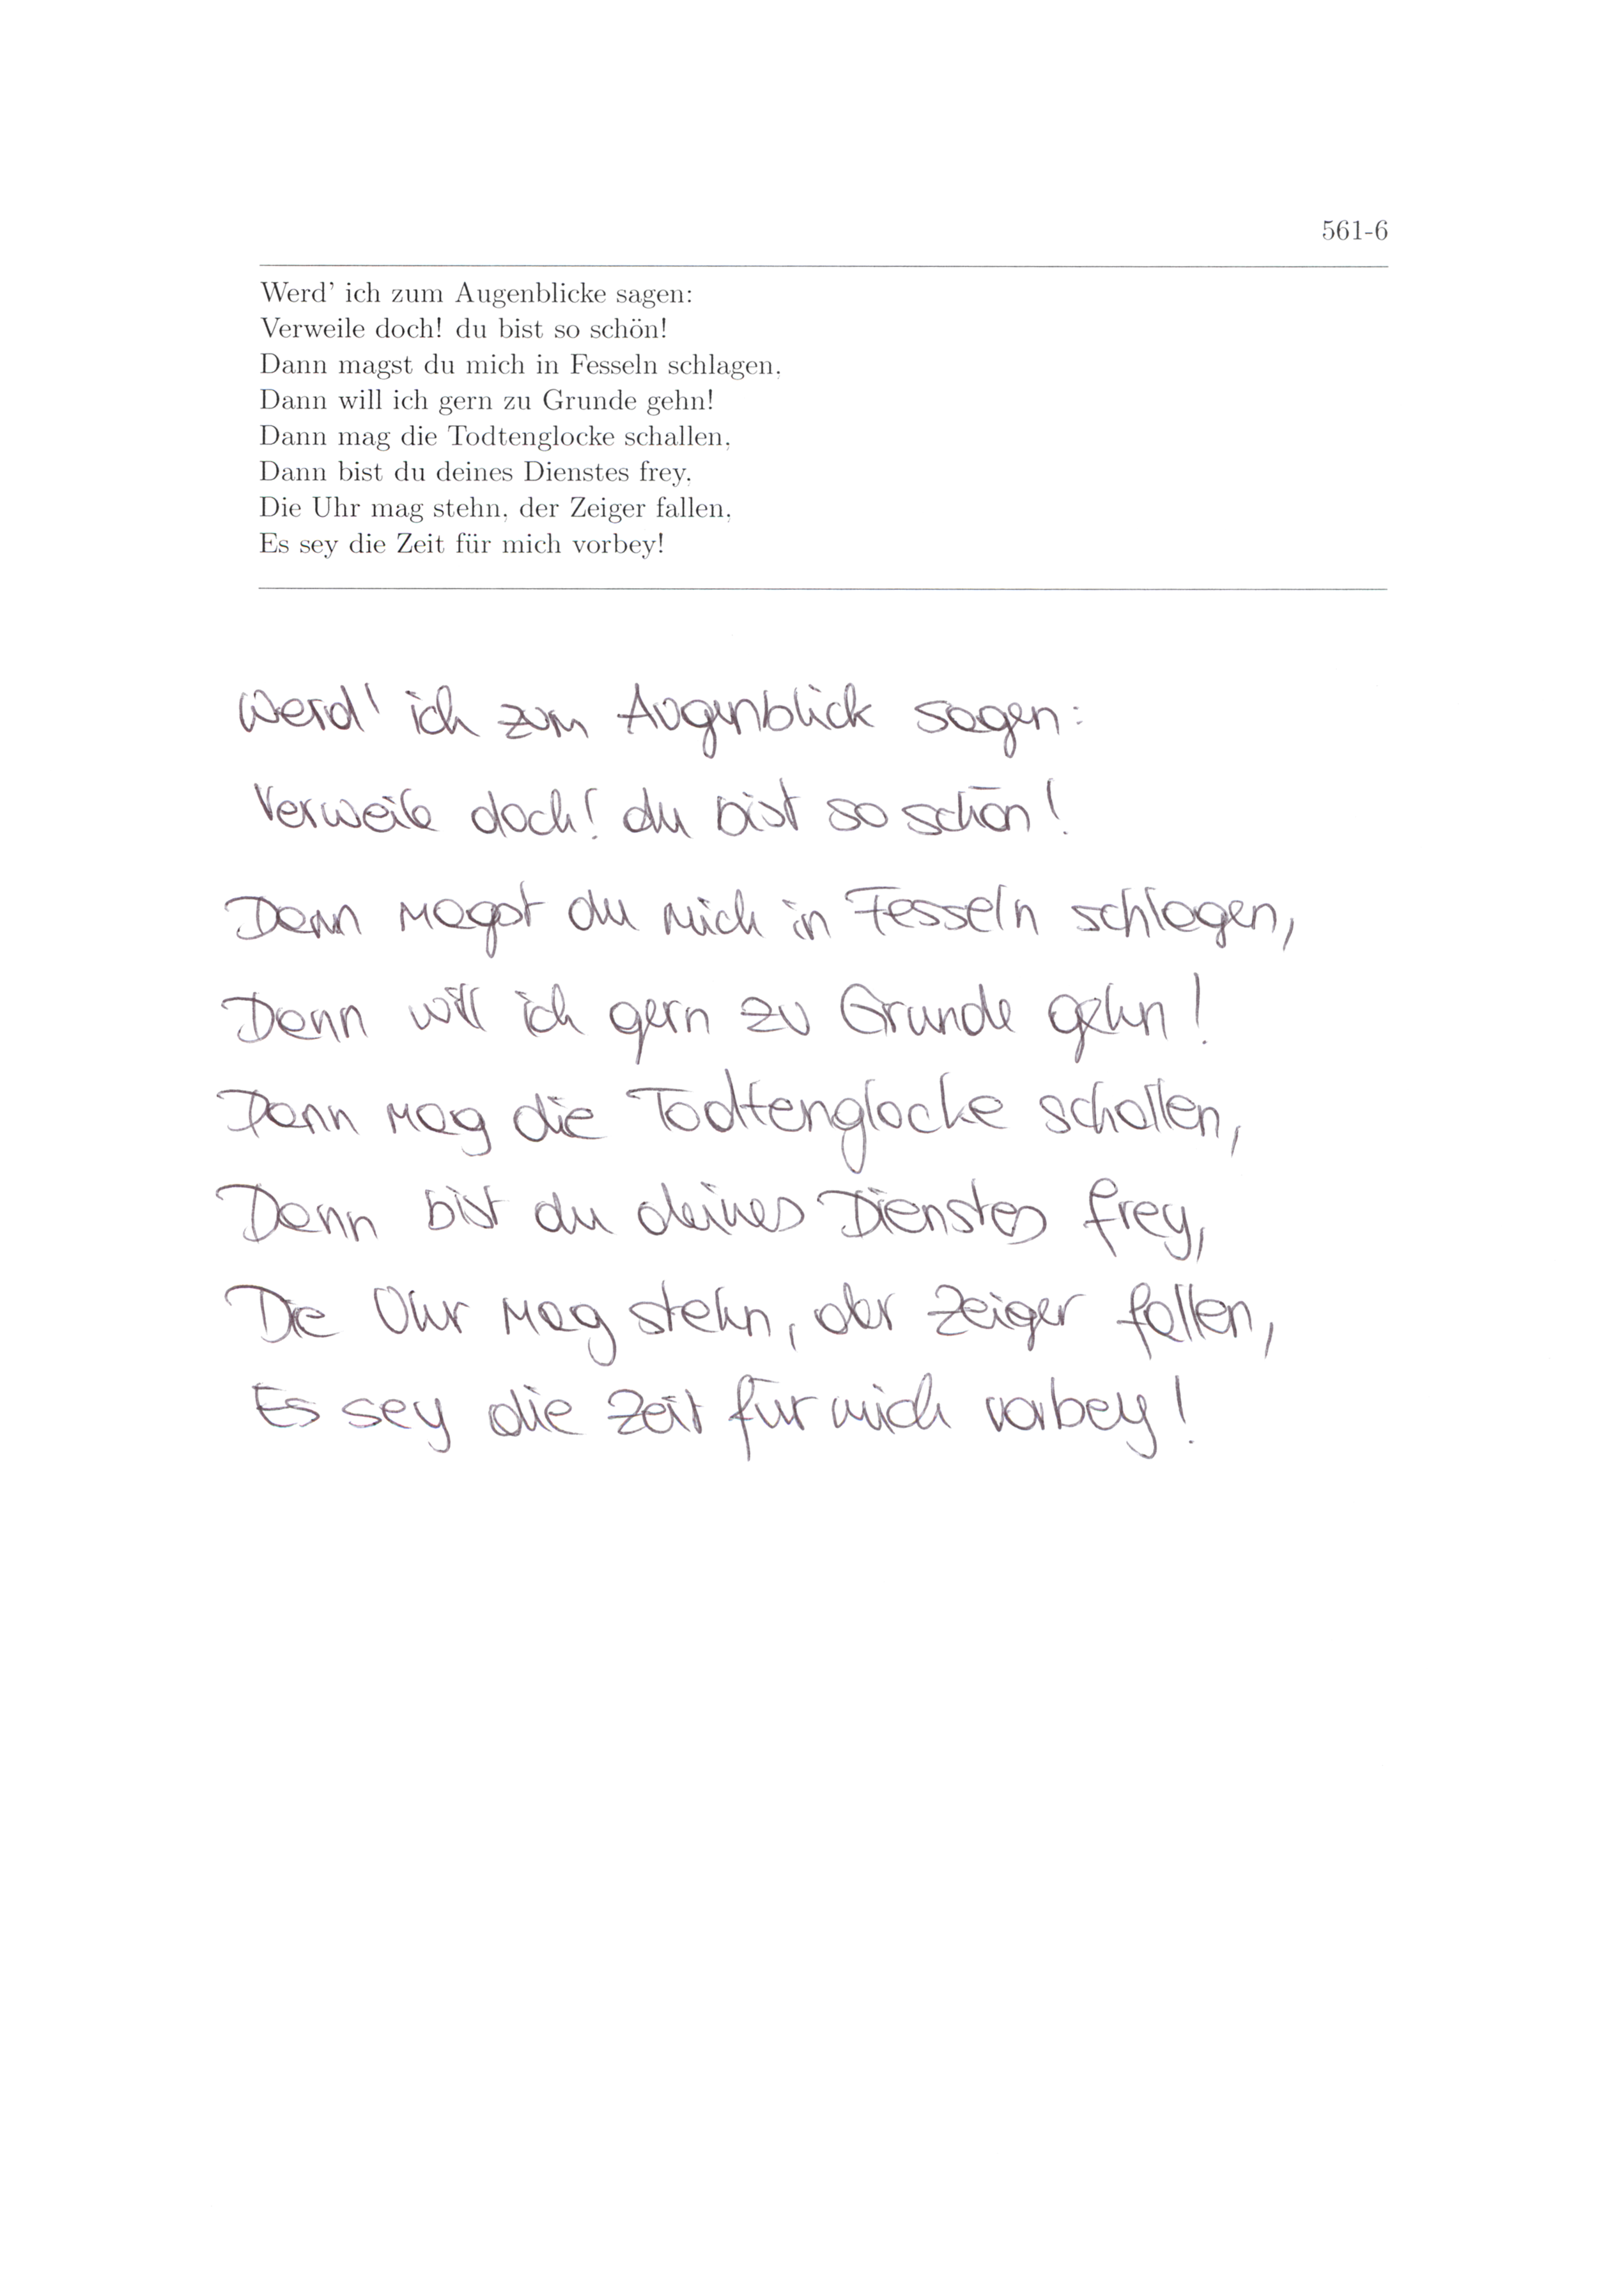 561-6
Werd' ich zum Augenblicke sagen:
Verweile doch! du bist so schön!
Dann magst du mich in Fesseln schlagen,
Dann will ich gern zu Grunde gehn!
Dann mag die Todtenglocke schallen,
Dann bist du deines Dienstes frey,
Die Uhr mag stehn, der Zeiger fallen,
Es sey die Zeit für mich vorbey!
Werd' ich zum Augenblick sagen:
Verweile doch! du bist so schön!
Dann magst du mich in Fesseln schlagen,
Dann will ich gern zu Grunde gehn!
Dann mag die Todtenglocke schallen,
Dann bist du deines Dienstes frey,
Die Uhr mag stehn, der Zeiger fallen,
Es sey die Zeit für mich vorbey!